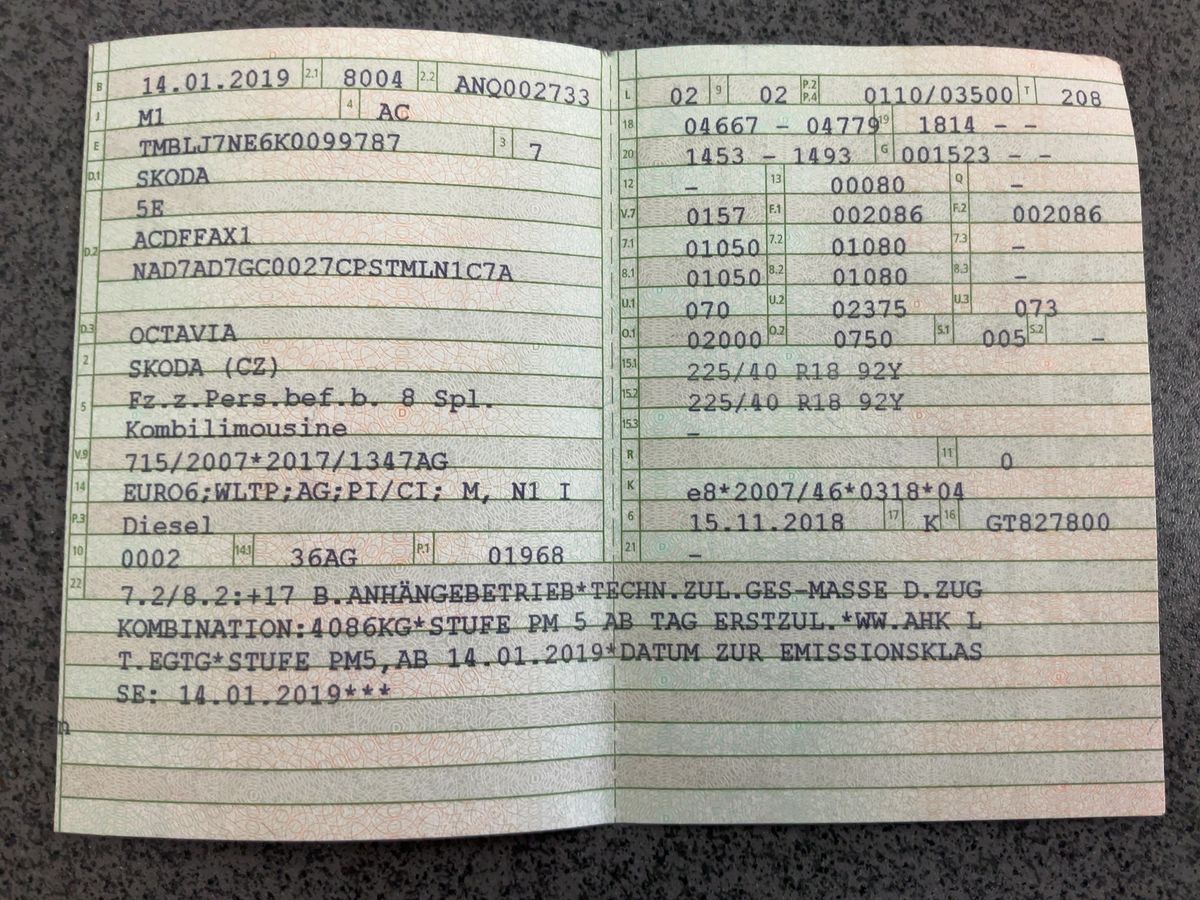 B 14.01.2019 2.1 8004 2.2 ANQ002733
J M1 4 AC
E TMBLJ7NE6K0099787 3 7
D.1 SKODA
5E
D.2 ACDFFAX1
NAD7AD7GC0027CPSTMLN1C7A
D.3 OCTAVIA
2 SKODA (CZ)
5 Fz.z.Pers.bef.b. 8 Spl.
Kombilimousine
V.9 715/2007*2017/1347AG
14 EURO6;WLTP;AG;PI/CI; M, N1 I
P.3 Diesel
10 0002 14.1 36AG P.1 01968
L 02 9 02 P.2 P.4 0110/03500 T 208
18 04667 - 04779 19 1814 - -
20 1453 - 1493 G 001523 - -
12 - 13 00080 Q -
V.7 0157 F.1 002086 F.2 002086
7.1 01050 7.2 01080 7.3 -
8.1 01050 8.2 01080 8.3 -
U.1 070 U.2 02375 U.3 073
O.1 02000 O.2 0750 S.1 005 S.2 -
15.1 225/40 R18 92Y
15.2 225/40 R18 92Y
15.3 -
R 11 0
K e8*2007/46*0318*04
6 15.11.2018 17 K 16 GT827800
21 -
22 7.2/8.2:+17 B.ANHÄNGEBETRIEB*TECHN.ZUL.GES-MASSE D.ZUG
KOMBINATION:4086KG*STUFE PM 5 AB TAG ERSTZUL.*WW.AHK L
T.EGTG*STUFE PM5,AB 14.01.2019*DATUM ZUR EMISSIONSKLAS
SE: 14.01.2019***
n